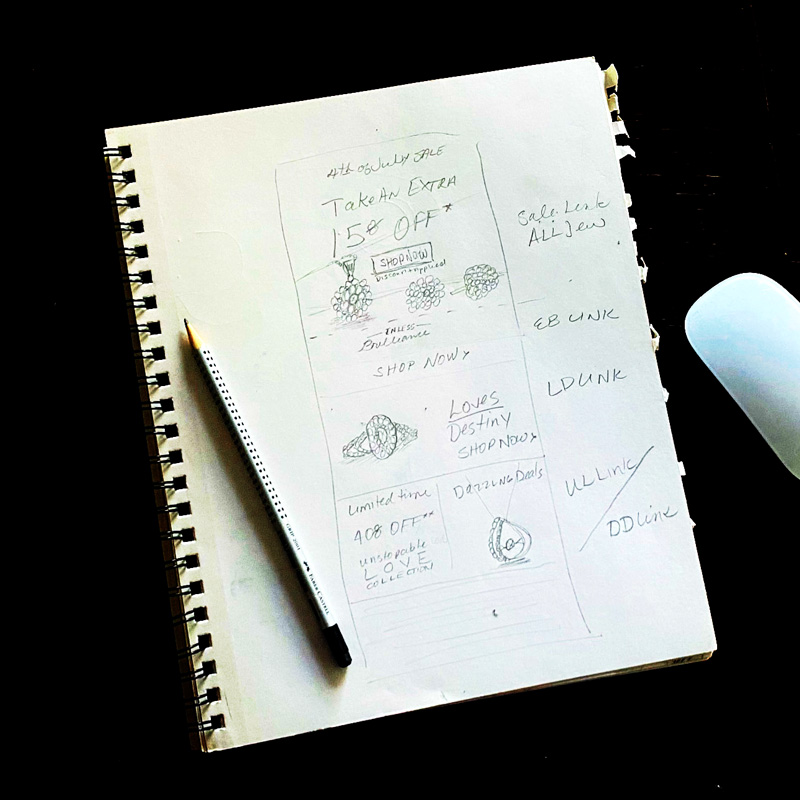 4th of July SALE
Take AN EXTRA
15% OFF*
SHOP NOW
Discount applied
ENLESS
Brilliance
SHOP NOW>
Loves
Destiny
SHOP NOW>
Limited time
40% OFF**
unstopable
LOVE
COLLECTION
Dazzling Deals
Sale Link
ALL Jew
EB LINK
LD LINK
UL Link
DD Link
FABER-CASTELL